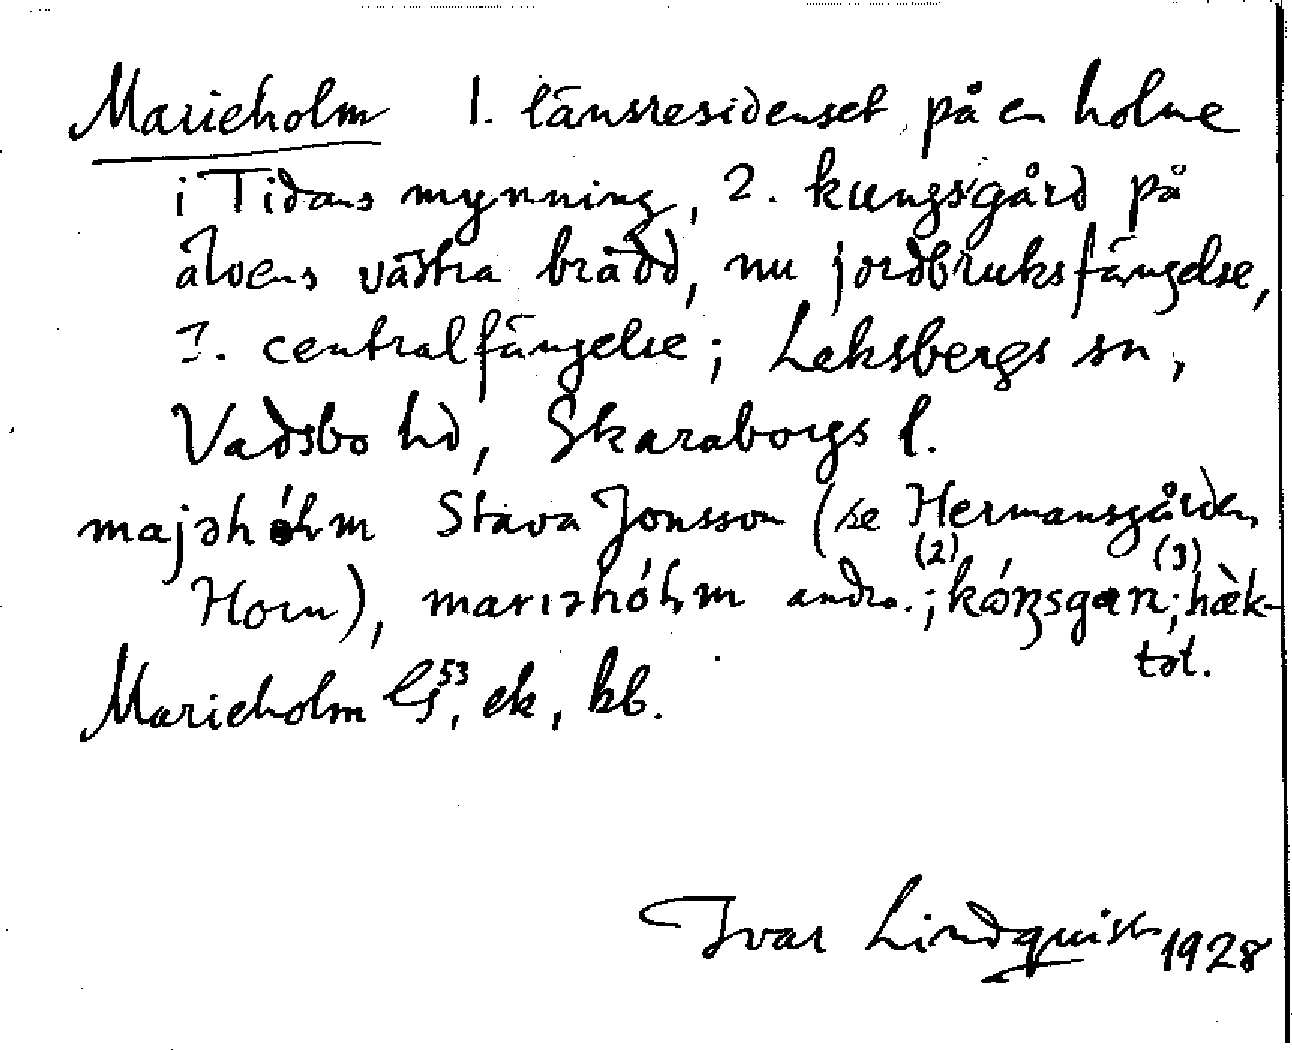 Marieholm 1. länsresidenset på en holme
i Tidans mynning, 2. kungsgård på
älvens västra brädd, nu jordbruksfängelse,
3. centralfängelse; Leksbergs sn,
Vadsbo hd, Skaraborgs l.
majəhólm Stava Jonsson (se Hermansgården,
(2) (3)
Horn), mariəhólm andra.; kóŋsgaɳ; hæ̀k-
tət.
Marieholm 53, ek, kb.
Ivar Lindquist 1928